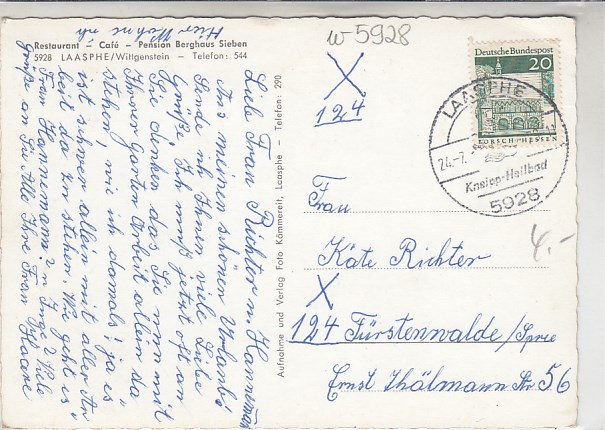 w-5928
Hier wohne ich
Restaurant – Café – Pension Berghaus Sieben
5928 LAASPHE/Wittgenstein – Telefon: 544
Lieb. Frau Richter u. Hanneman
Aus meinen schönen Urlaub's
Sende ich Ihnen viele Liebe
Grüße, Ich muß jetzt oft an
Sie denken das Sie nun mit
Ihrer Garten Arbeit allein da
stehen, wie ich damals! ja es
ist schwer allein mit aller Ar
beit da zu stehen. Wie geht es
Frau Hannemann? u Inge? Viele
Grüße an Sie Alle Ihre Frau
Aufnahme und Verlag Foto Kämmereit, Laasphe – Telefon: 290
X
124
Deutsche Bundespost
20
LORSCH/HESSEN
LAASPHE
24.-7.
Kneipp-Heilbad
5928
4,-
Frau
Käte Richter
X
124 Fürstenwalde/Spree
Ernst Thälmann Str 56